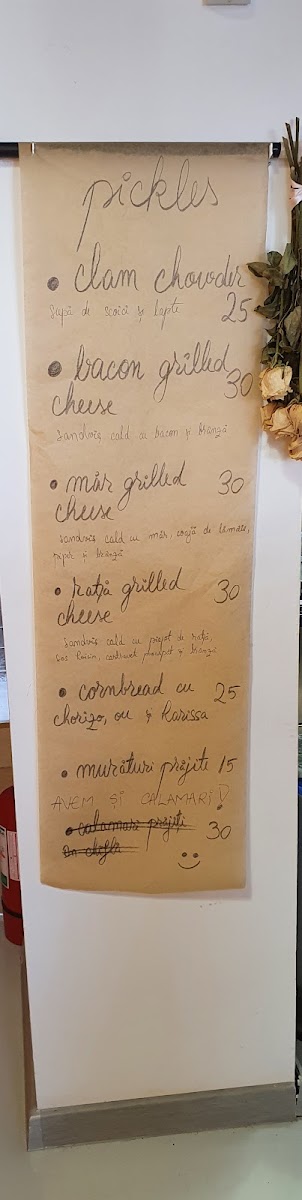 pickles
• clam chowder
Supă de scoici și lapte 25
• bacon grilled 30
cheese
Sandwiș cald cu bacon și brânză
• măr grilled 30
cheese
Sandwiș cald cu măr, coajă de lămâie,
piper și brânză
• rață grilled 30
cheese
Sandwiș cald cu piept de rață,
sos hoisin, castravet murat și brânză
• cornbread cu 25
chorizo, ou și harissa
• murături prăjite 15
AVEM ȘI CALAMARI!
• calamari prăjiți 30
în chiflă